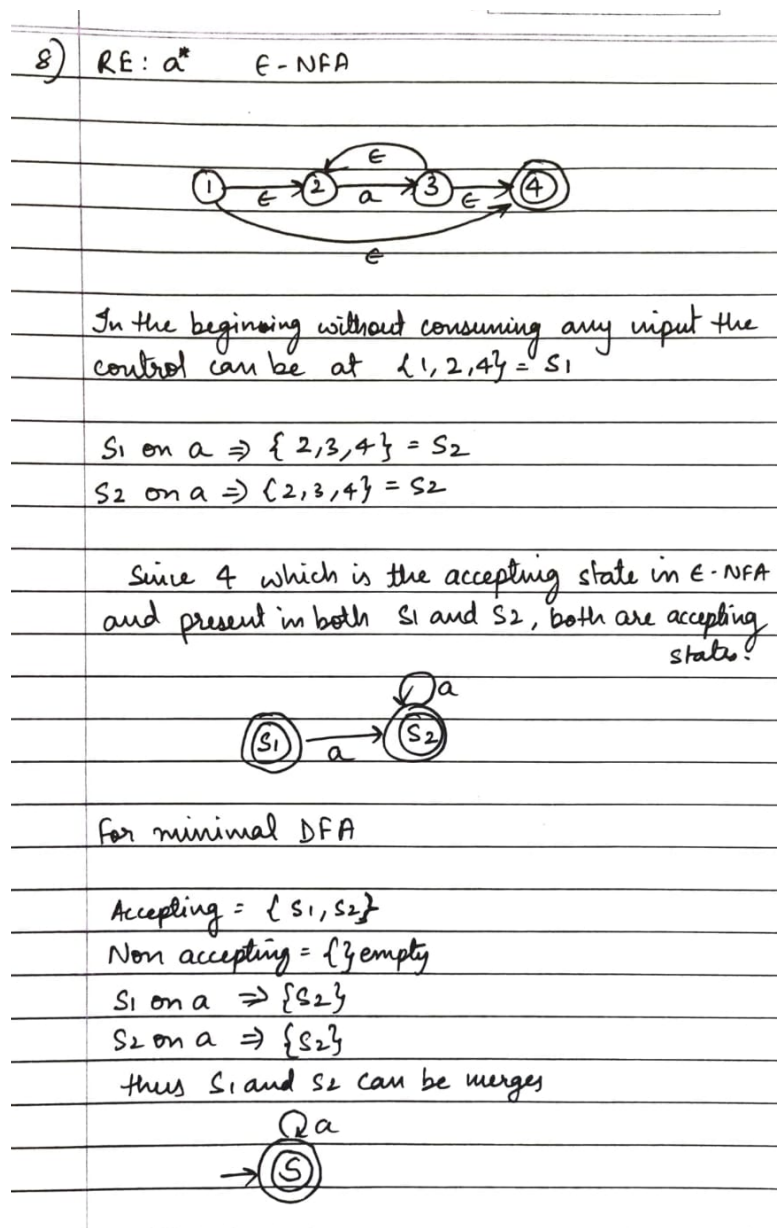 8) RE: a* ϵ-NFA
ϵ
1 ϵ 2 a 3 ϵ 4
ϵ
In the begining without consuming any input the
control can be at {1, 2, 4} = S1
S1 on a ⇒ {2, 3, 4} = S2
S2 on a ⇒ {2, 3, 4} = S2
Since 4 which is the accepting state in ϵ-NFA
and present in both S1 and S2, both are accepting
states.
a
S1 a S2
For minimal DFA
Accepting = {S1, S2}
Non accepting = {} empty
S1 on a ⇒ {S2}
S2 on a ⇒ {S2}
thus S1 and S2 can be merges
a
S